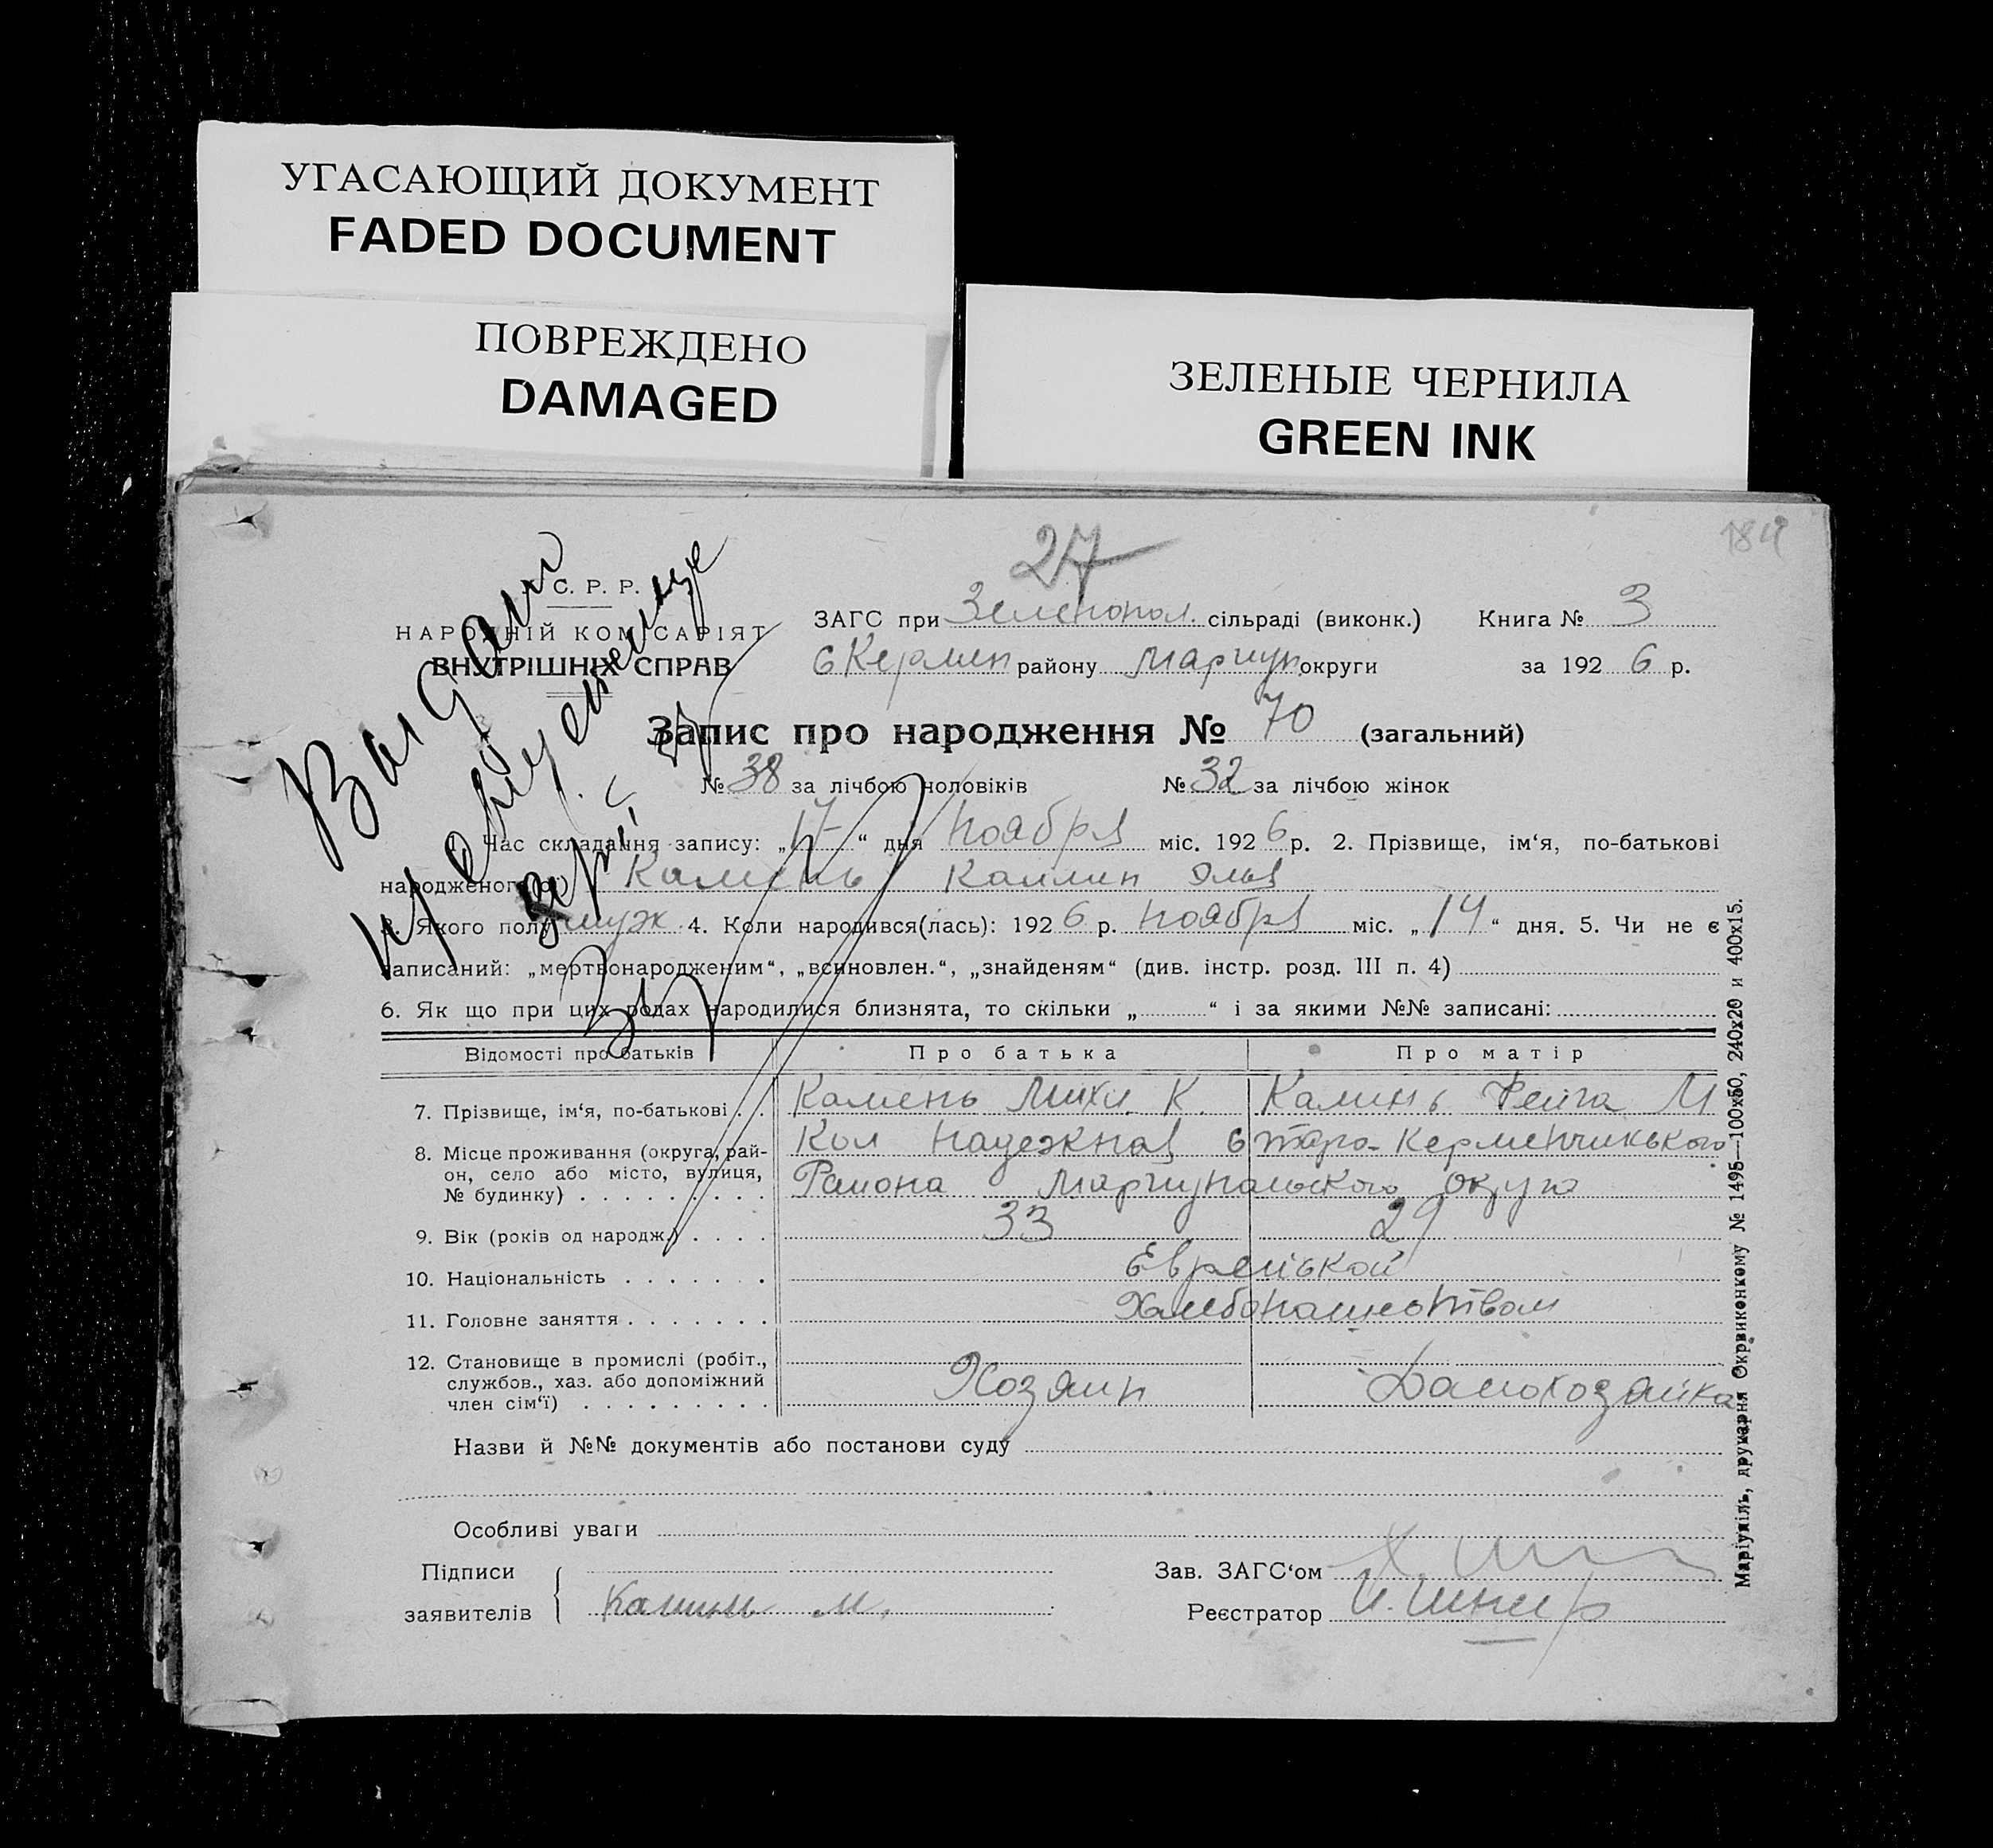 УГАСАЮЩИЙ ДОКУМЕНТ
FADED DOCUMENT
ПОВРЕЖДЕНО
DAMAGED
ЗЕЛЕНЫЕ ЧЕРНИЛА
GREEN INK
184
27
С. Р. Р.
НАРОДНІЙ КОМІСАРІЯТ
ВНУТРІШНІХ СПРАВ
ЗАГС при Зеленопол. сільраді (виконк.) Книга № 3
СКермен району Мариуп. округи за 1926 р.
Запис про народження № 70 (загальний)
№ 38 за лічбою чоловіків № 32 за лічбою жінок
1. Час складання запису: „17“ дня Ноября міс. 1926 р. 2. Прізвище, ім‘я, по-батькові
народженого(ої) Камень
3. Якого полу муж 4. Коли народився(лась): 1926 р. Ноября міс. „14“ дня. 5. Чи не є
записаний: „мертвонародженим“, „всиновлен.“, „знайденям“ (див. інстр. розд. III п. 4)
6. Як що при цих родах народилися близнята, то скільки „ “ і за якими №№ записані:
Відомості про батьків Про батька Про матір
7. Прізвище, ім‘я, по-батькові . . Камень Михл. К. Каминь Фейга М
8. Місце проживання (округа, рай- Кол Надежная Старо-Керменчикького
он, село або місто, вулиця, Района Мариупальского округа
№ будинку) . . . . . . . . .
9. Вік (років од народж.) . . . . 33 29
10. Національність . . . . . . . Еврейской
11. Головне заняття . . . . . . . Хлебопашеством
12. Становище в промислі (робіт.,
службов., хаз. або допоміжний Хозяин Дамохозяйка
член сім‘ї) . . . . . . . . .
Назви й №№ документів або постанови суду
Особливі уваги
Підписи
заявителів Каминь М.
Зав. ЗАГС‘ом
Реєстратор И. Шнир
Маріупіль, друкарня Окрвиконкому № 1495—100х50, 240х20 и 400х15.